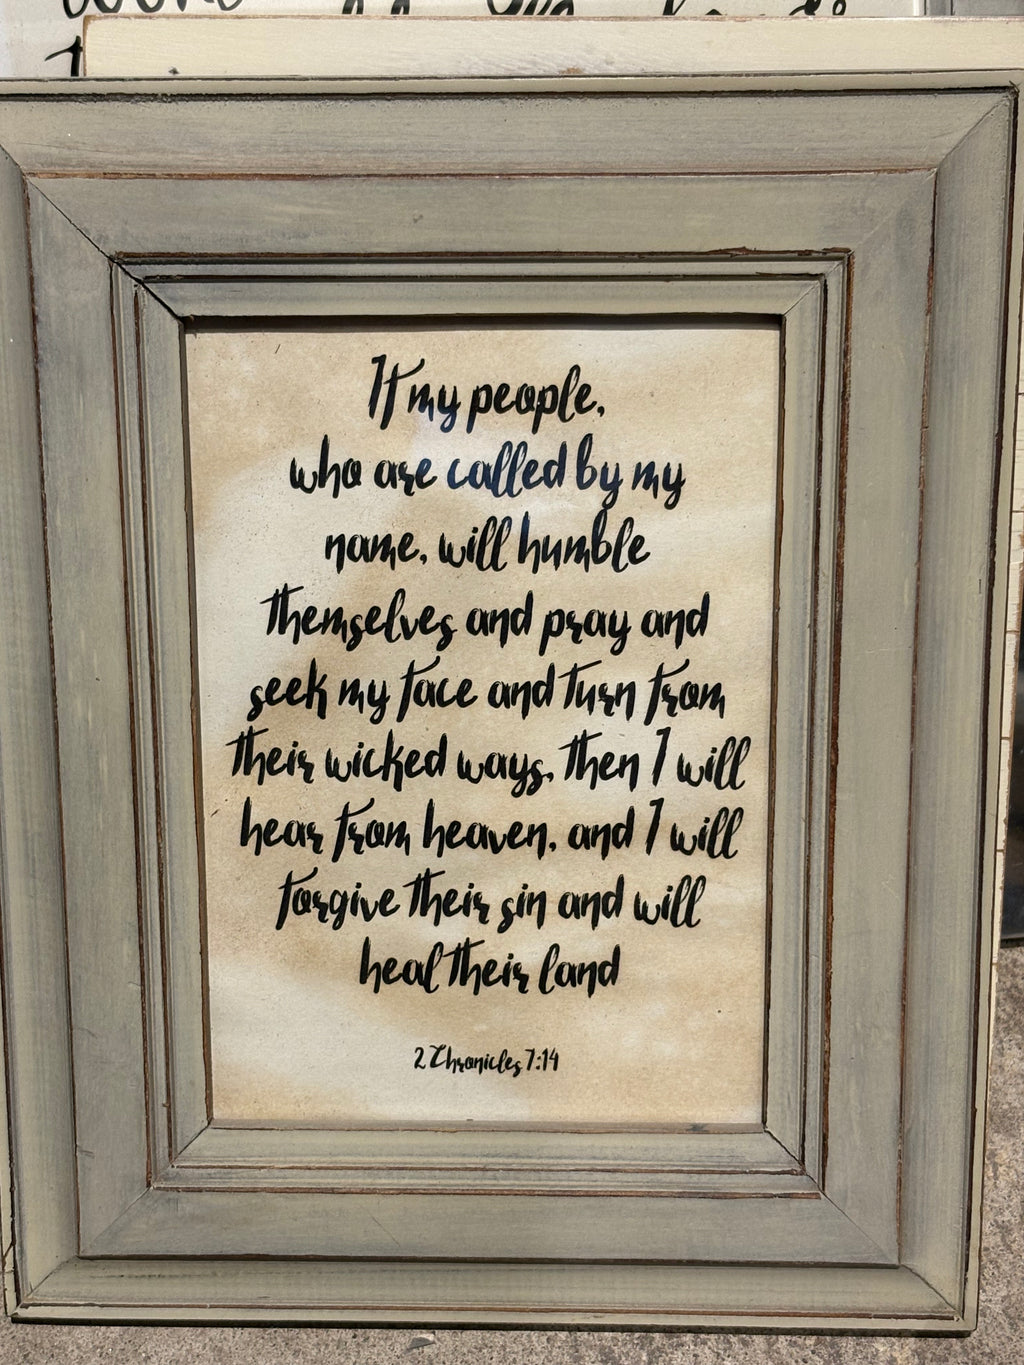 If my people,
who are called by my
name, will humble
themselves and pray and
seek my face and turn from
their wicked ways, then I will
hear from heaven, and I will
forgive their sin and will
heal their land
2 Chronicles 7:14